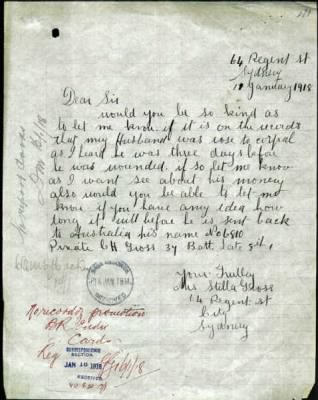 64 Regent st
Sydney
10 January 1918
Dear Sir
would you be so kind as
to let me know if it is on the records
that my Husband was rose to corpral
as I heard he was three days before
he was wounded. if so let me know
as I want see about his money
also would you be able to let me
know if you have any idea how
long it will before he is sent back
to Australia his name No 6810
Private C H Gross 37 Batt. Late 8th
Yours Trulley
Mrs Stella Gross
64 Regent st
City
Sydney
No record of promotion
BR
Cards
Reg
CORRESPONDENCE
SECTION
JAN 10 1918
RECEIVED